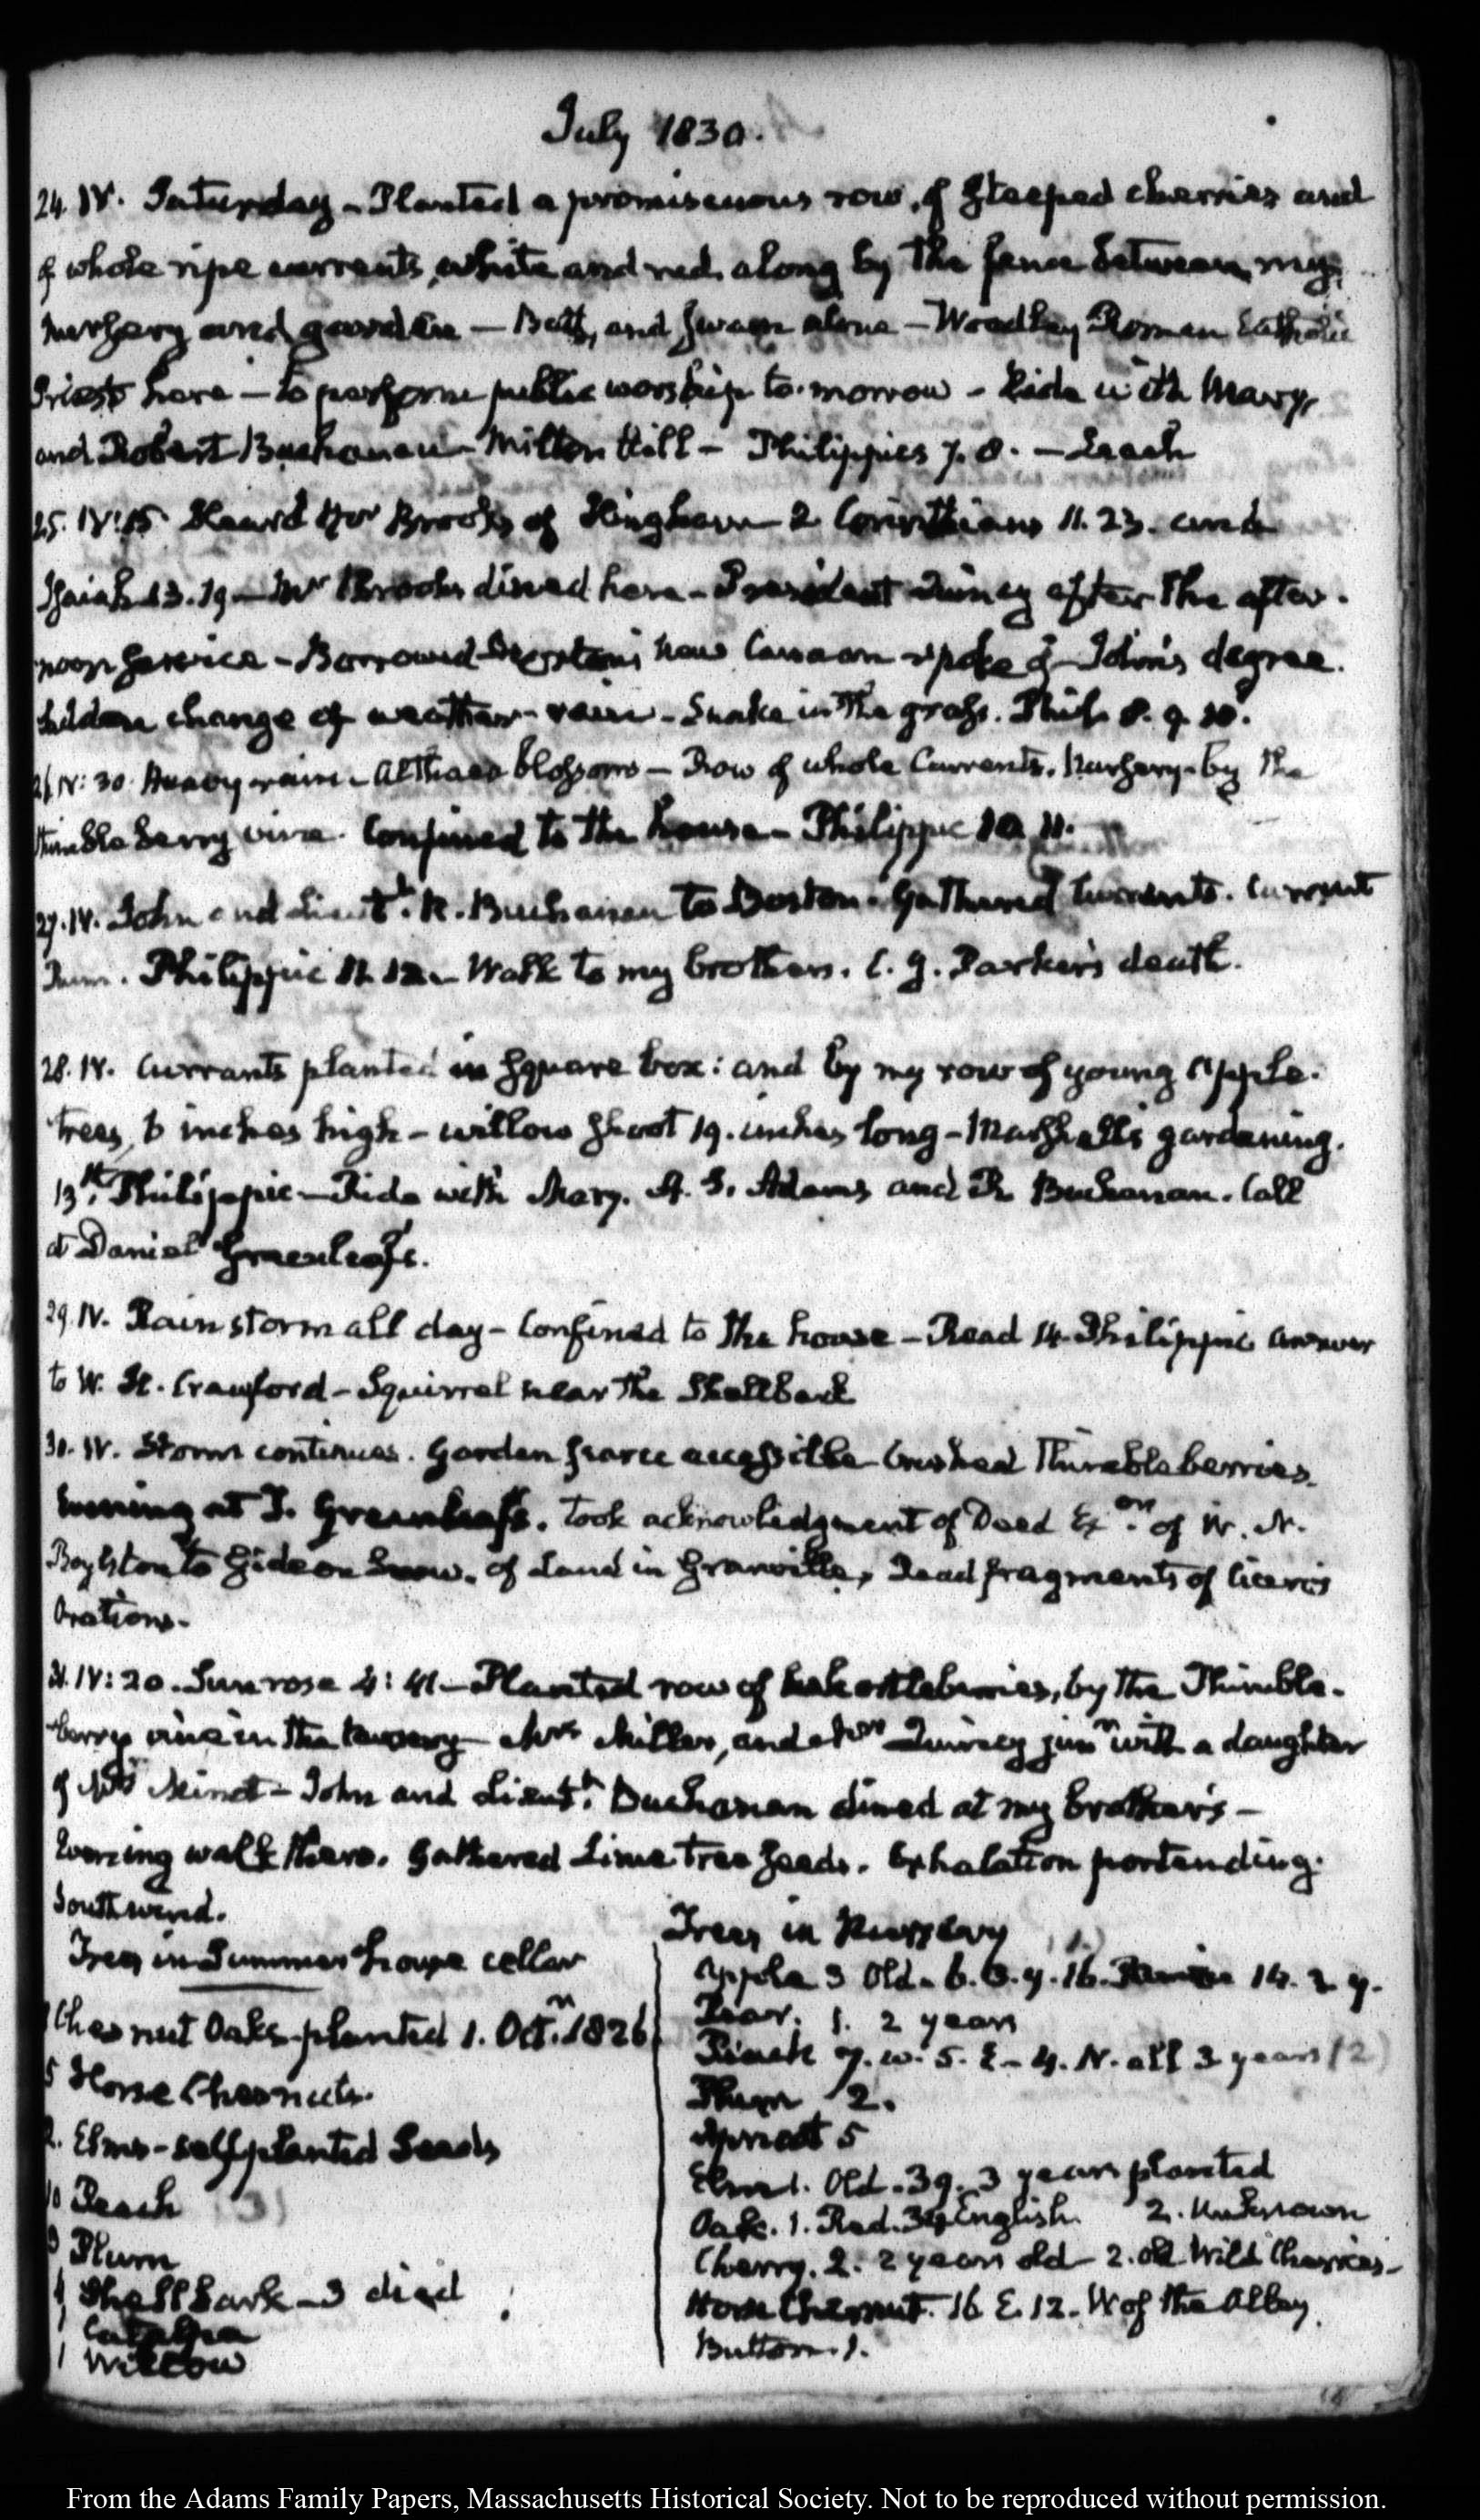 July 1830.
24. IV. Saturday - Planted a promiscuous row, of steeped cherries and
of whole ripe currants, white and red along by the fence between my
nursery and garden — Bath, and swam alone — Woodley Roman Catholic
Priest here — to perform public worship to-morrow - Ride with Mary,
and Robert Buchanan - Milton Hill - Philippics 7. 8. —
25. IV:15 Heard Mr Brooks of Hingham - 2 Corinthians 11. 23. and
Isaiah 13. 19 — Mr Brooks dined here - President Quincy after the after-
noon service - Borrowed new Canaan spoke of John's degree.
Sudden change of weather - rain - Snake in the grass. Phil. 8. 9. 10.
26. IV:30. Heavy rain - Althaea blossoms — Row of whole Currants. Nursery - by the
thimbleberry vine. Confined to the house - Philippic 10. 11.
27. IV. John and Lieutt. R. Buchanan to Boston. Gathered Currants. Currant
Philippic 11. 12 - Walk to my brothers. C. G. Parker's death.
28. IV. Currants planted in square box: and by my row of young Apple-
trees, 6 inches high - willow shoot 19. inches long - Marshall's gardening.
13th. Philippic — Ride with Mary. A. S. Adams and R Buchanan. Call
at Daniel Greenleaf's.
29. IV. Rain storm all day - Confined to the house - Read 14 Philippic answer
to W. H. Crawford - Squirrel near the Shellbark
30. IV. Storm continues. Garden scarce accessible - Crushed Thimbleberries.
Evening at T. Greenleaf's. Took acknowledgment of Deed Exon. of W. N.
Boylston to Gideon Snow. of Land in Granville, Read fragments of Cicero's
Orations -
31. IV:20. Sun rose 4:41 - Planted row of , by the Thimble-
berry vine in the Mrs Miller, and Mrs Quincy junr with a daughter
of Mrs Minot - John and Lieutt. Buchanan dined at my brother's -
Evening walk there. Gathered Lime tree seeds. Exhalation portending
Southwind.
Trees in Summer house cellar
Chesnut Oaks - planted 1. Octr. 1826
5 Horse Chesnuts.
2. Elms - self planted Seeds
10 Peach (3)
Plum
Shellbark - 3 died
1 Catalpa
1 Willow
Trees in Nursery
Apple 3 Old - 6. 16. 14. 2 y.
Pear. 1. 2 years
Peach 7. W. 5. E - 4. N. all 3 years (2)
Plum 2.
Apricot 5
Elm 1. Old. 39. 3 years planted
Oak. 1. Red. 34 English. 2. Unknown
Cherry. 2. 2 years old - 2. old Wild Cherries -
Horse Chesnut. 16 E. 12. W of the Alley
Button. 1.
From the Adams Family Papers, Massachusetts Historical Society. Not to be reproduced without permission.